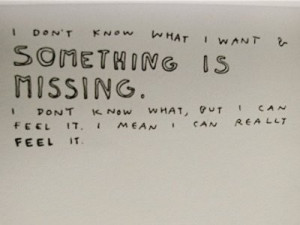 I DON'T KNOW WHAT I WANT &
SOMETHING IS
MISSING.
I DONT KNOW WHAT, BUT I CAN
FEEL IT. I MEAN I CAN REALLY
FEEL IT.